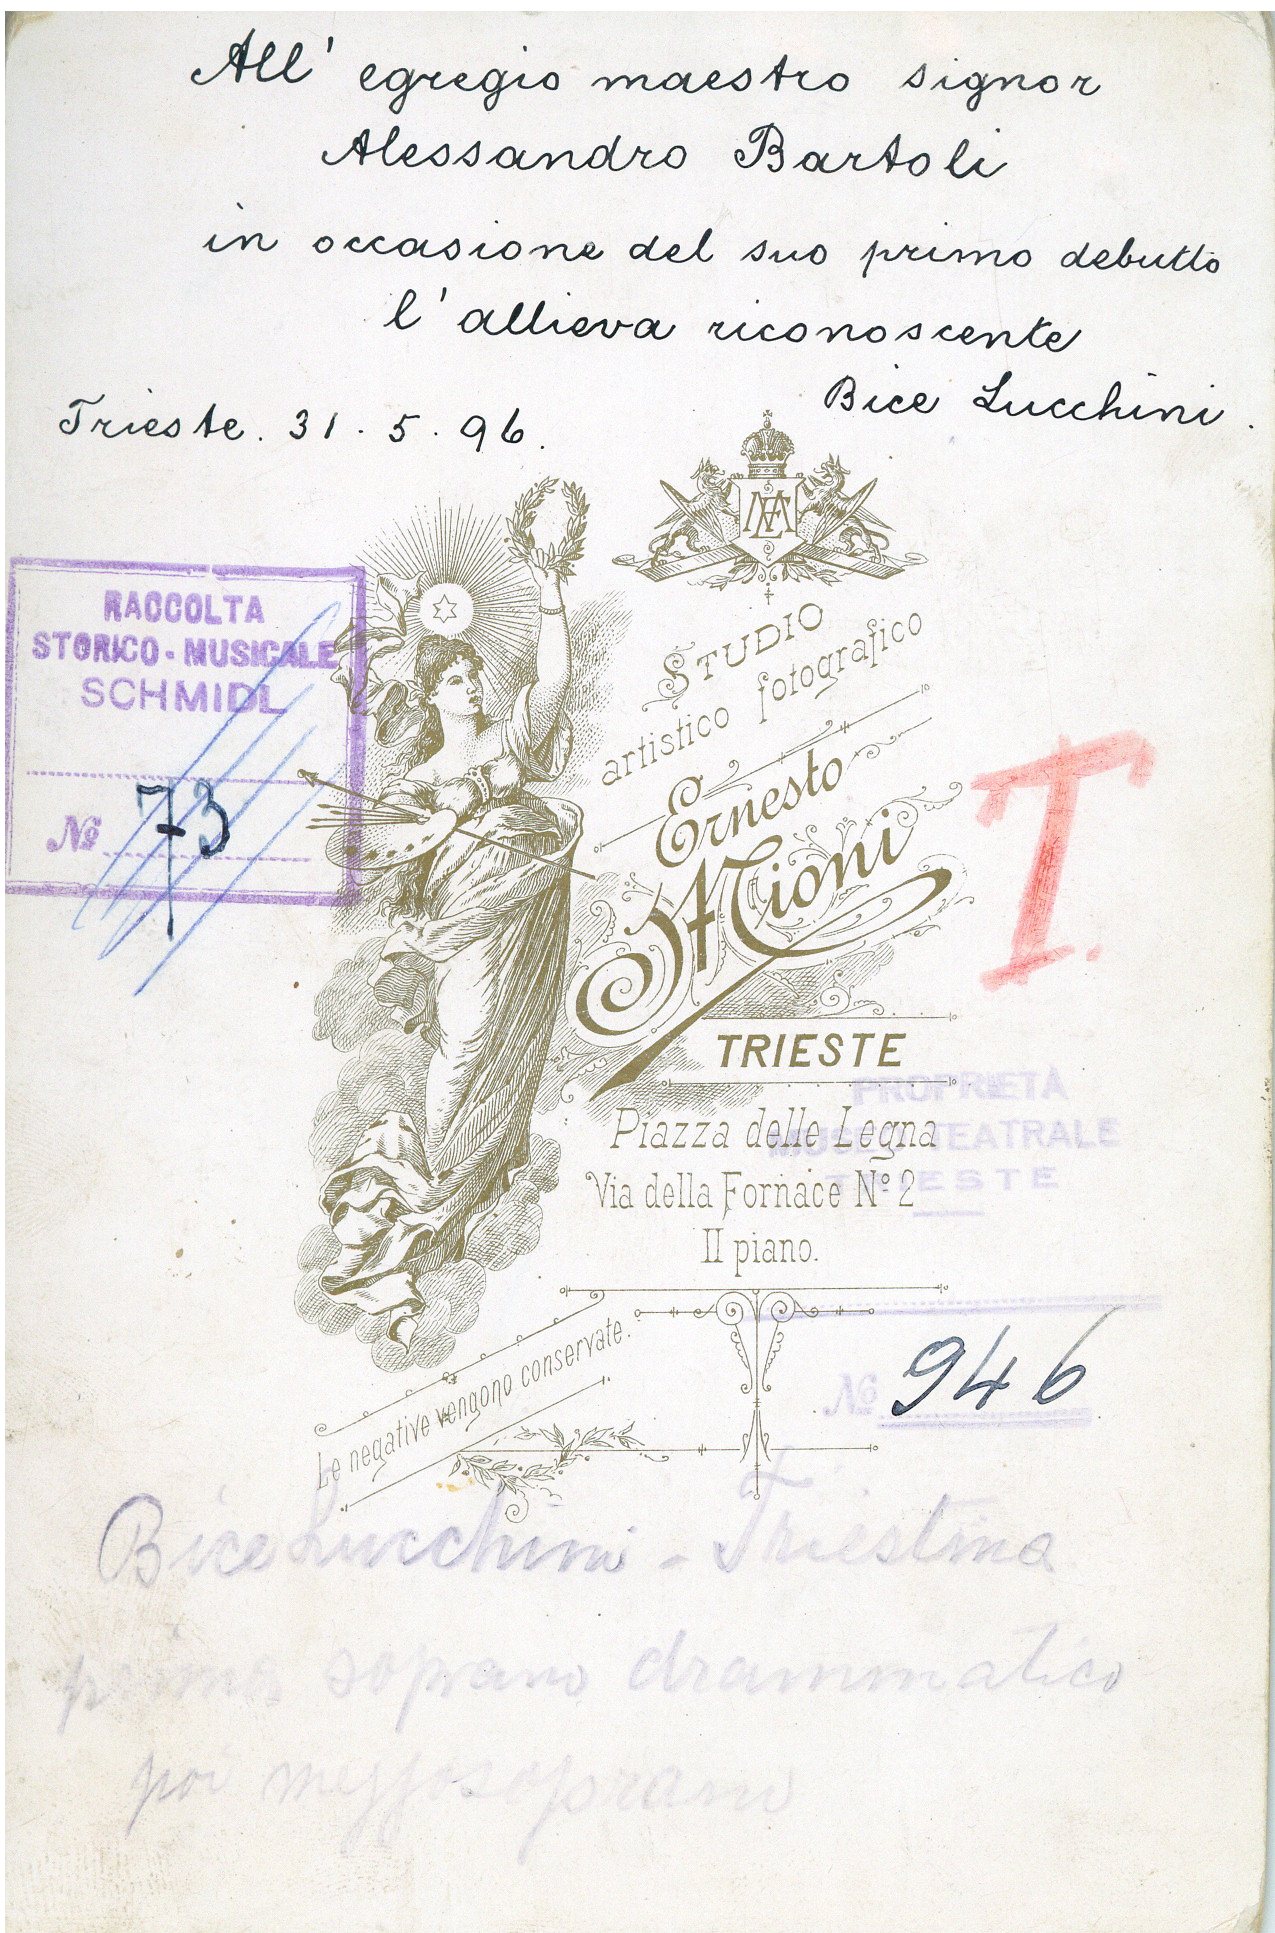 All' egregio maestro signor
Alessandro Bartoli
in occasione del suo primo debutto
l'allieva riconoscente
Bice Lucchini.
Trieste. 31. 5. 96.
RACCOLTA
STORICO-MUSICALE
SCHMIDL
No 73
EM
STUDIO
artistico fotografico
Ernesto
Mioni
TRIESTE
Piazza delle Legna
Via della Fornace No. 2
II piano.
Le negative vengono conservate.
T.
PROPRIETÀ
MUSEO TEATRALE
TRIESTE
No 946
Bice Lucchini - Triestina
prima soprano drammatico
poi mezzosoprano